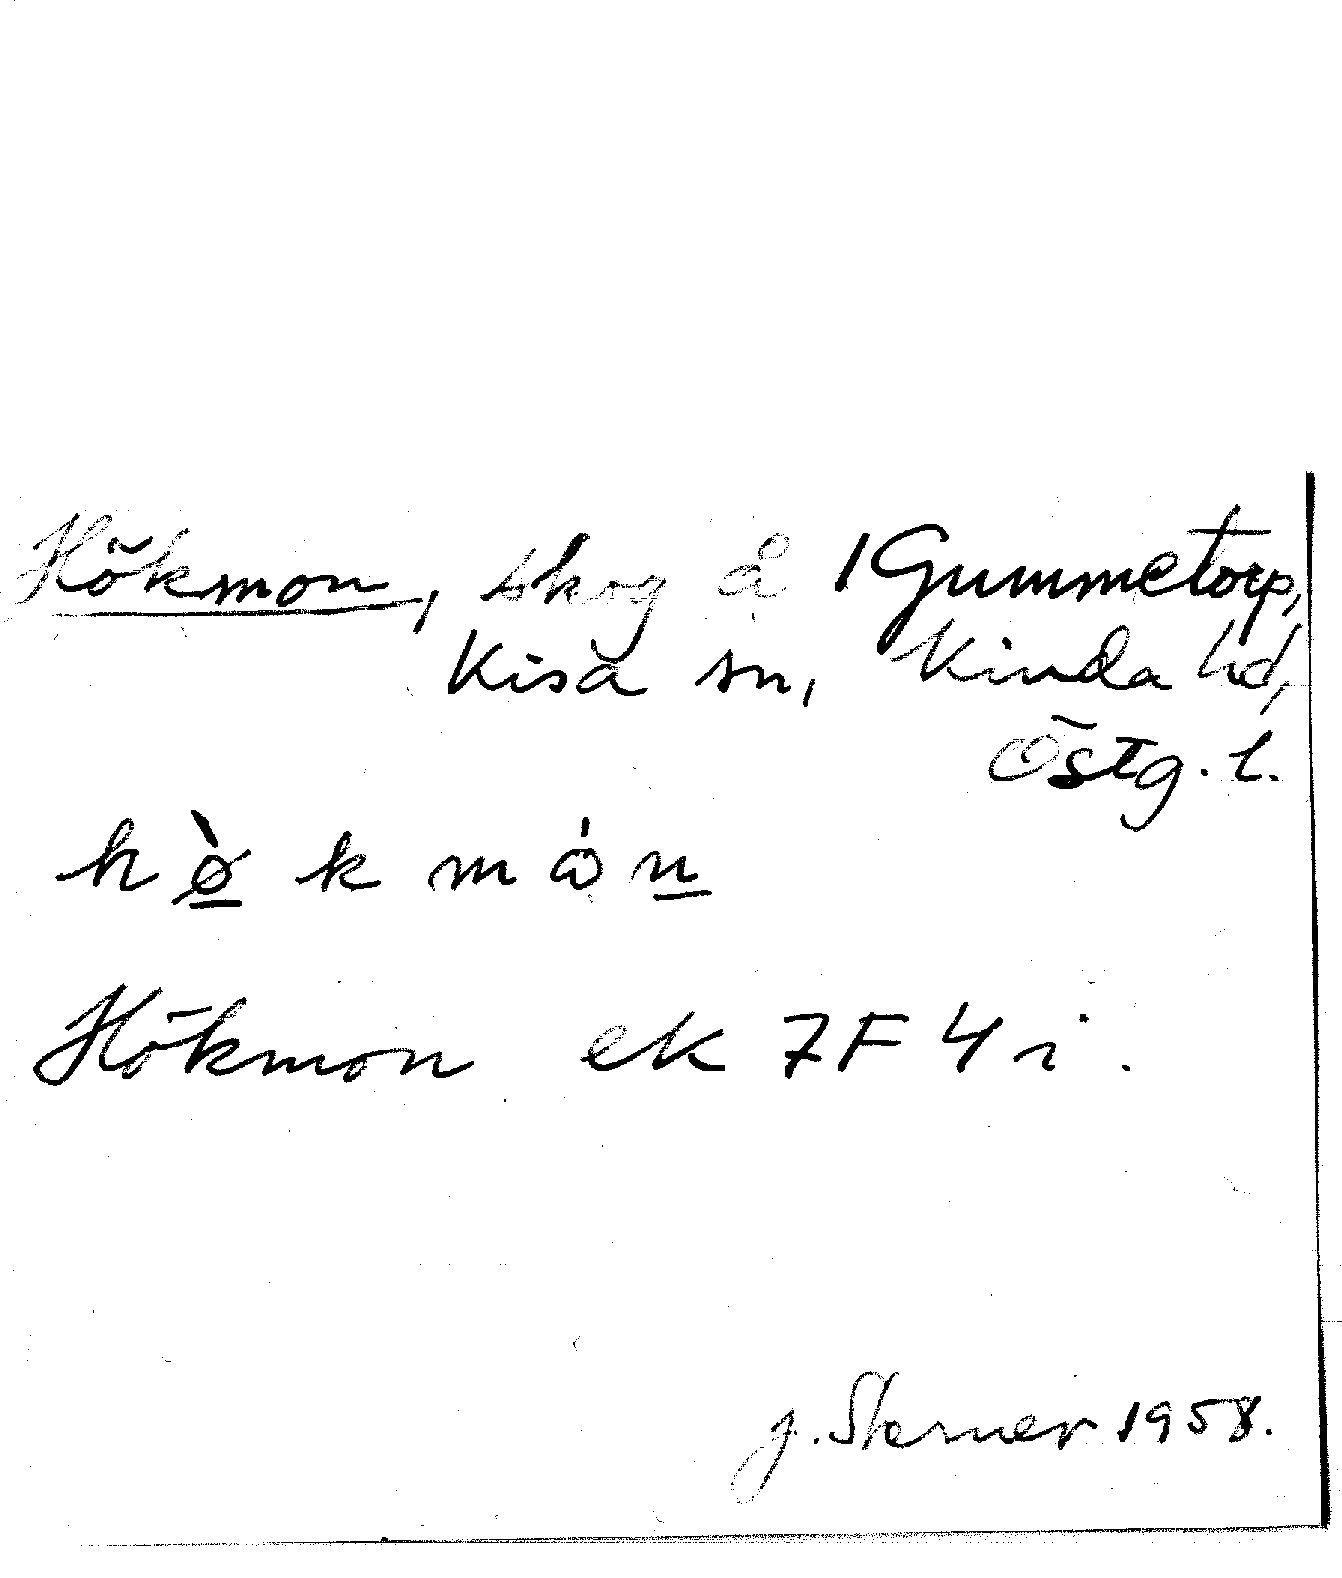 Hökmon, skog å 1 Gummetorp,
Kisa sn, Kinda hd,
Östg. l.
hø̀kmȧn
Hökmon ek 7F4i.
J. Sterner 1958.